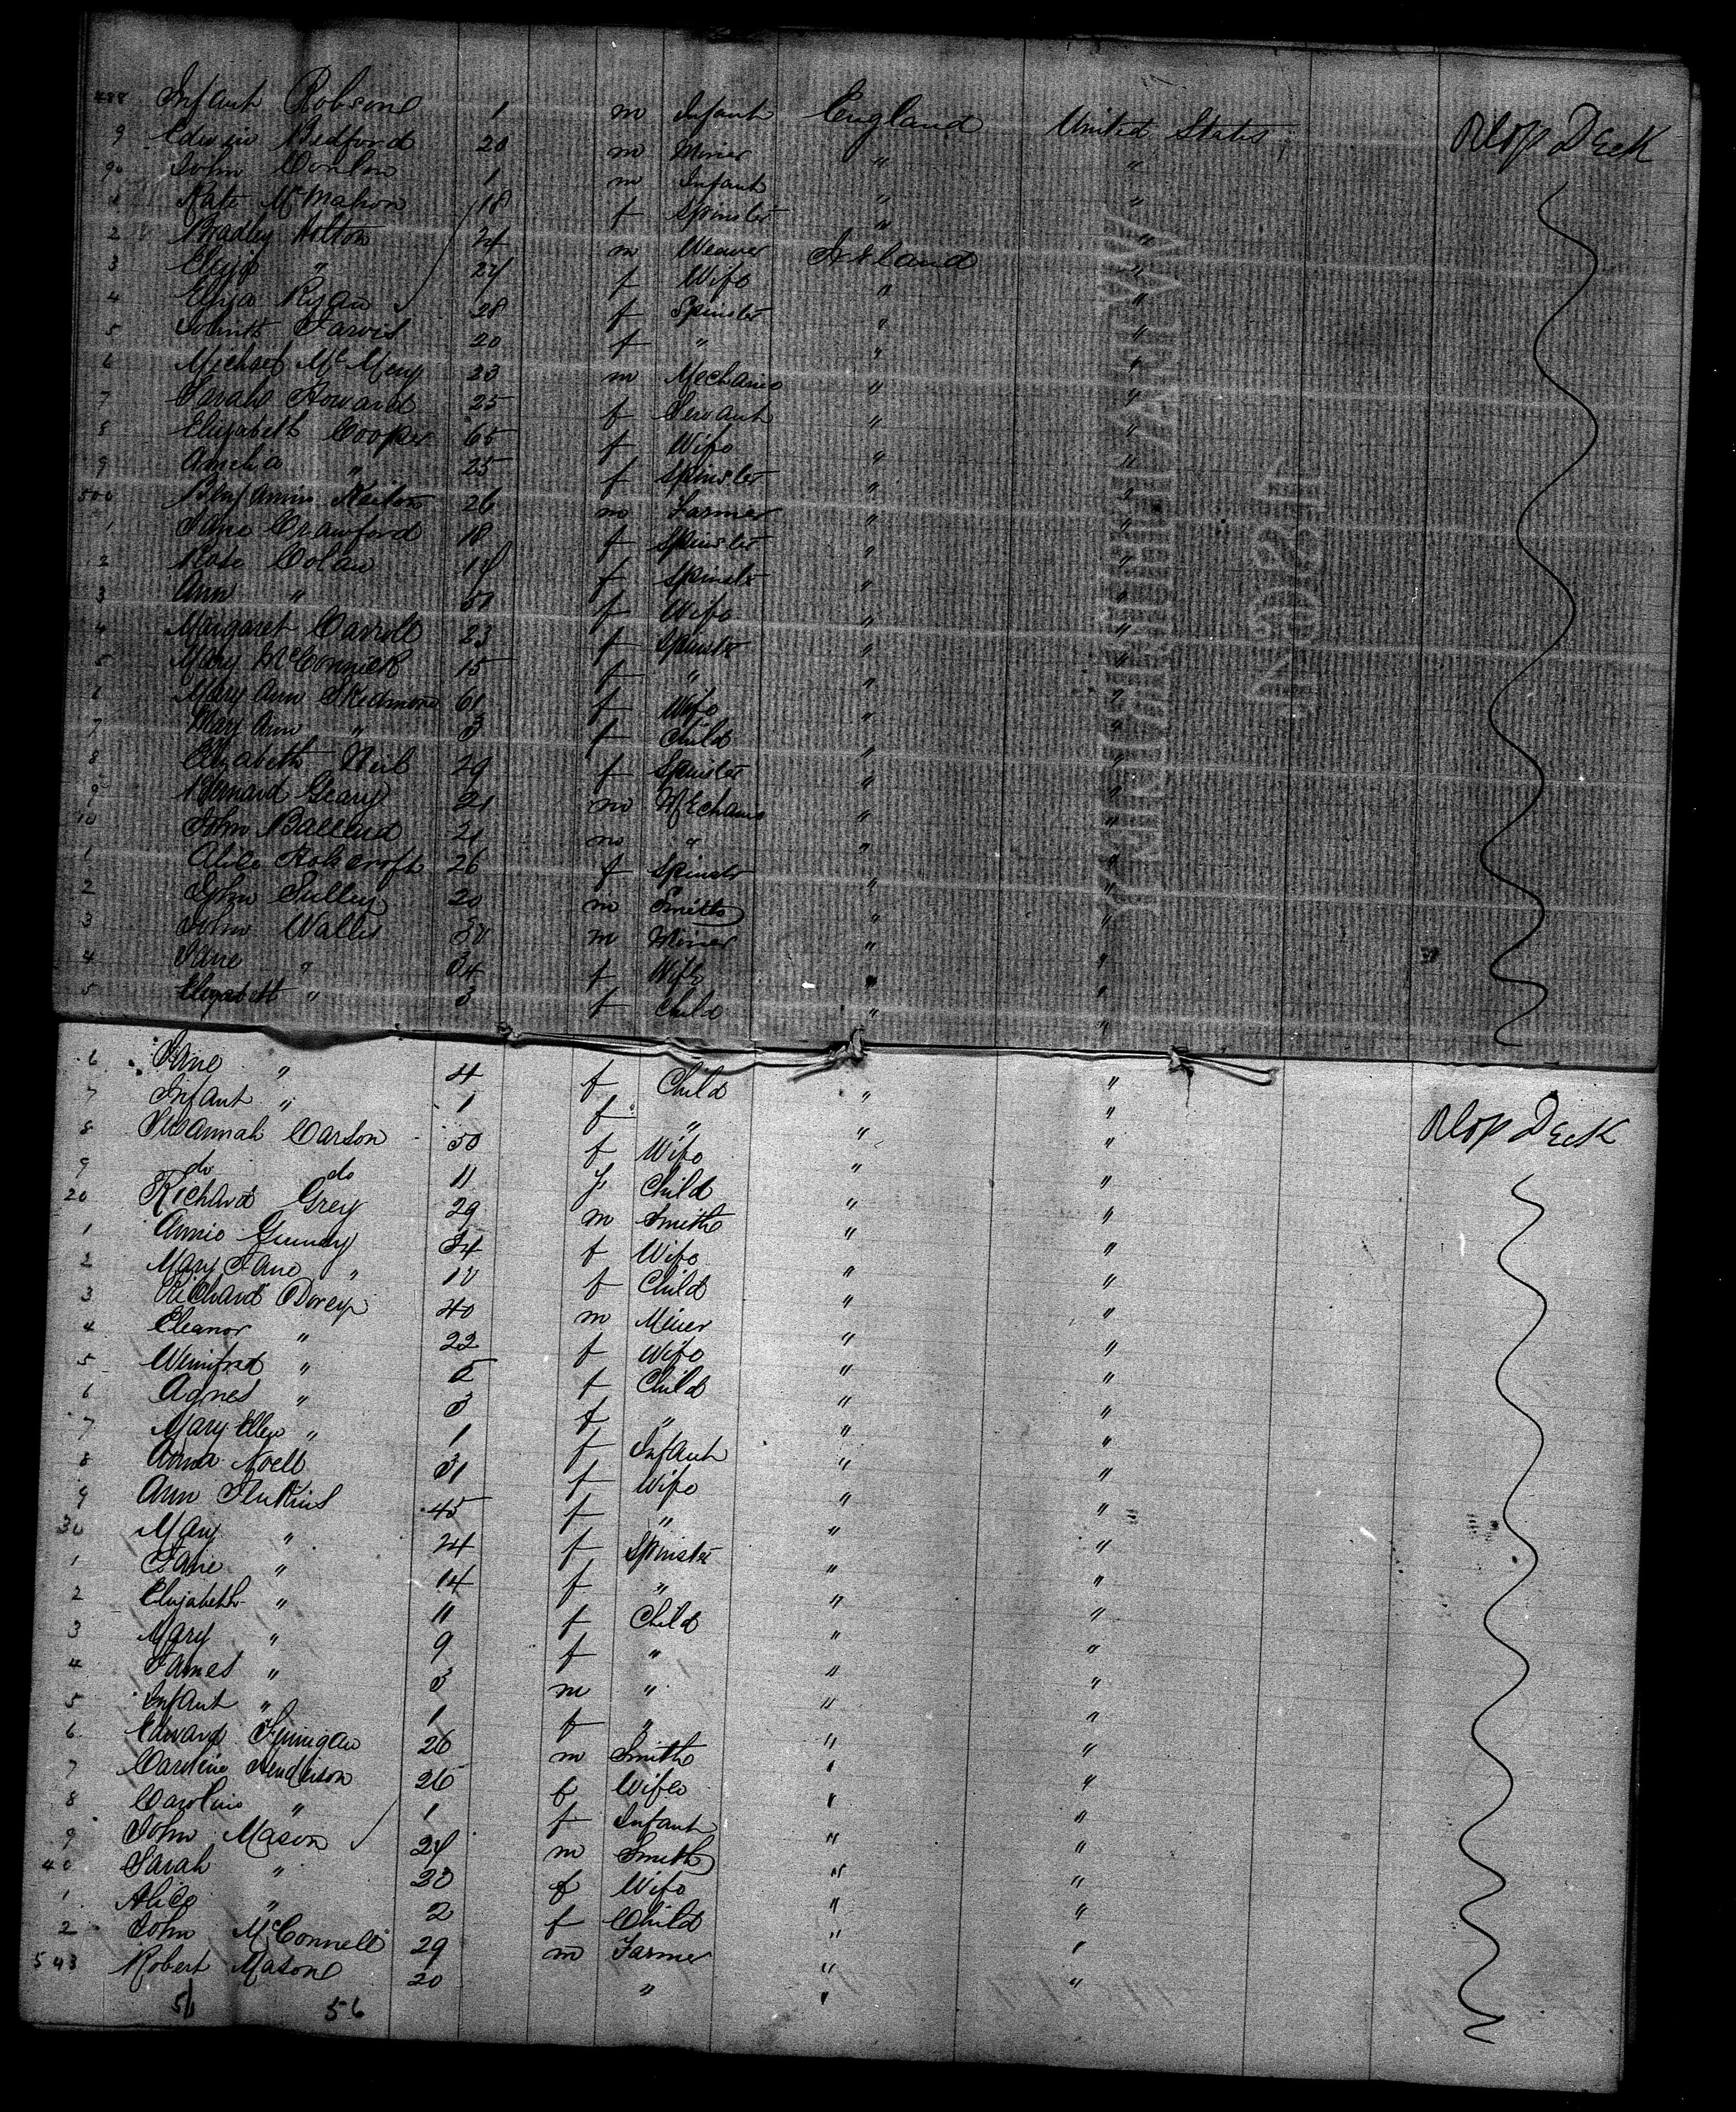 488 Infant Robson 1 m Infant England United States Slop Deck
9 Edwin Bedford 20 m Miner " "
90 John Conlon 1 m Infant " "
1 Kate McMahon 18 f Spinster " "
2 Bradley Holton 24 m Weaver Ireland "
3 Eliza " 24 f Wife " "
4 Eliza Ryan 28 f Spinster " "
5 Jarvis 20 f " " "
6 Michael Mc 23 m Mechanic " "
7 Sarah Howard 25 f Servant " "
8 Elizabeth Cooper 65 f Wife " "
9 Amelia " 25 f Spinster " "
500 Benjamin 26 m Farmer " "
1 Jane Crawford 18 f Spinster " "
2 Rose Colan 14 f Spinster " "
3 Ann " 50 f Wife " "
4 Margaret Carroll 23 f Spinster " "
5 Mary McConnick 15 f " " "
6 Mary Ann Skidmore 61 f Wife " "
7 Mary Ann " 3 f Child " "
8 Elizabeth Neil 29 f Spinster " "
9 Bernard Geary 21 m Mechanic " "
10 John Ballard 21 m " " "
1 Alice Rohcroft 26 f Spinster " "
2 John Sulley 20 m Smith " "
3 John Wallis 30 m Miner " "
4 Jane " 34 f Wife " "
5 Elizabeth " 3 f Child " "
6 Jane " 4 f Child " " Slop Deck
7 Infant " 1 f " " "
8 Susannah Carson 50 f Wife " "
9 do do 11 f Child " "
20 Richard Grey 29 m Smith " "
1 Annie 34 f Wife " "
2 Mary Jane " 10 f Child " "
3 Richard Dorey 40 m Miner " "
4 Eleanor " 22 f Wife " "
5 Winifred " 5 f Child " "
6 Agnes " 3 f " " "
7 Mary Ellen " 1 f Infant " "
8 Anna Noell 31 f Wife " "
9 Ann Jenkins 45 f " " "
30 Mary " 24 f Spinster " "
1 Jane " 14 f " " "
2 Elizabeth " 11 f Child " "
3 Mary " 9 f " " "
4 James " 3 m " " "
5 Infant " 1 f " " "
6 Edward Finnigan 26 m Smith " "
7 Caroline Henderson 26 f Wife " "
8 Caroline " 1 f Infant " "
9 John Mason 24 m Smith " "
40 Sarah " 23 f Wife " "
1 Alice " 2 f Child " "
2 John McConnell 29 m Farmer " "
543 Robert Mason 20 " " "
56 56